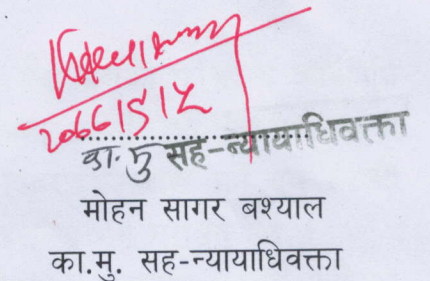 २०६६।५।२
का. मु सह-न्यायाधिवक्ता
मोहन सागर बश्याल
का.मु. सह-न्यायाधिवक्ता